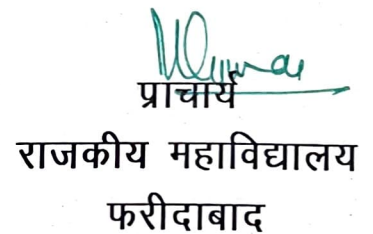 प्राचार्य
राजकीय महाविद्यालय
फरीदाबाद